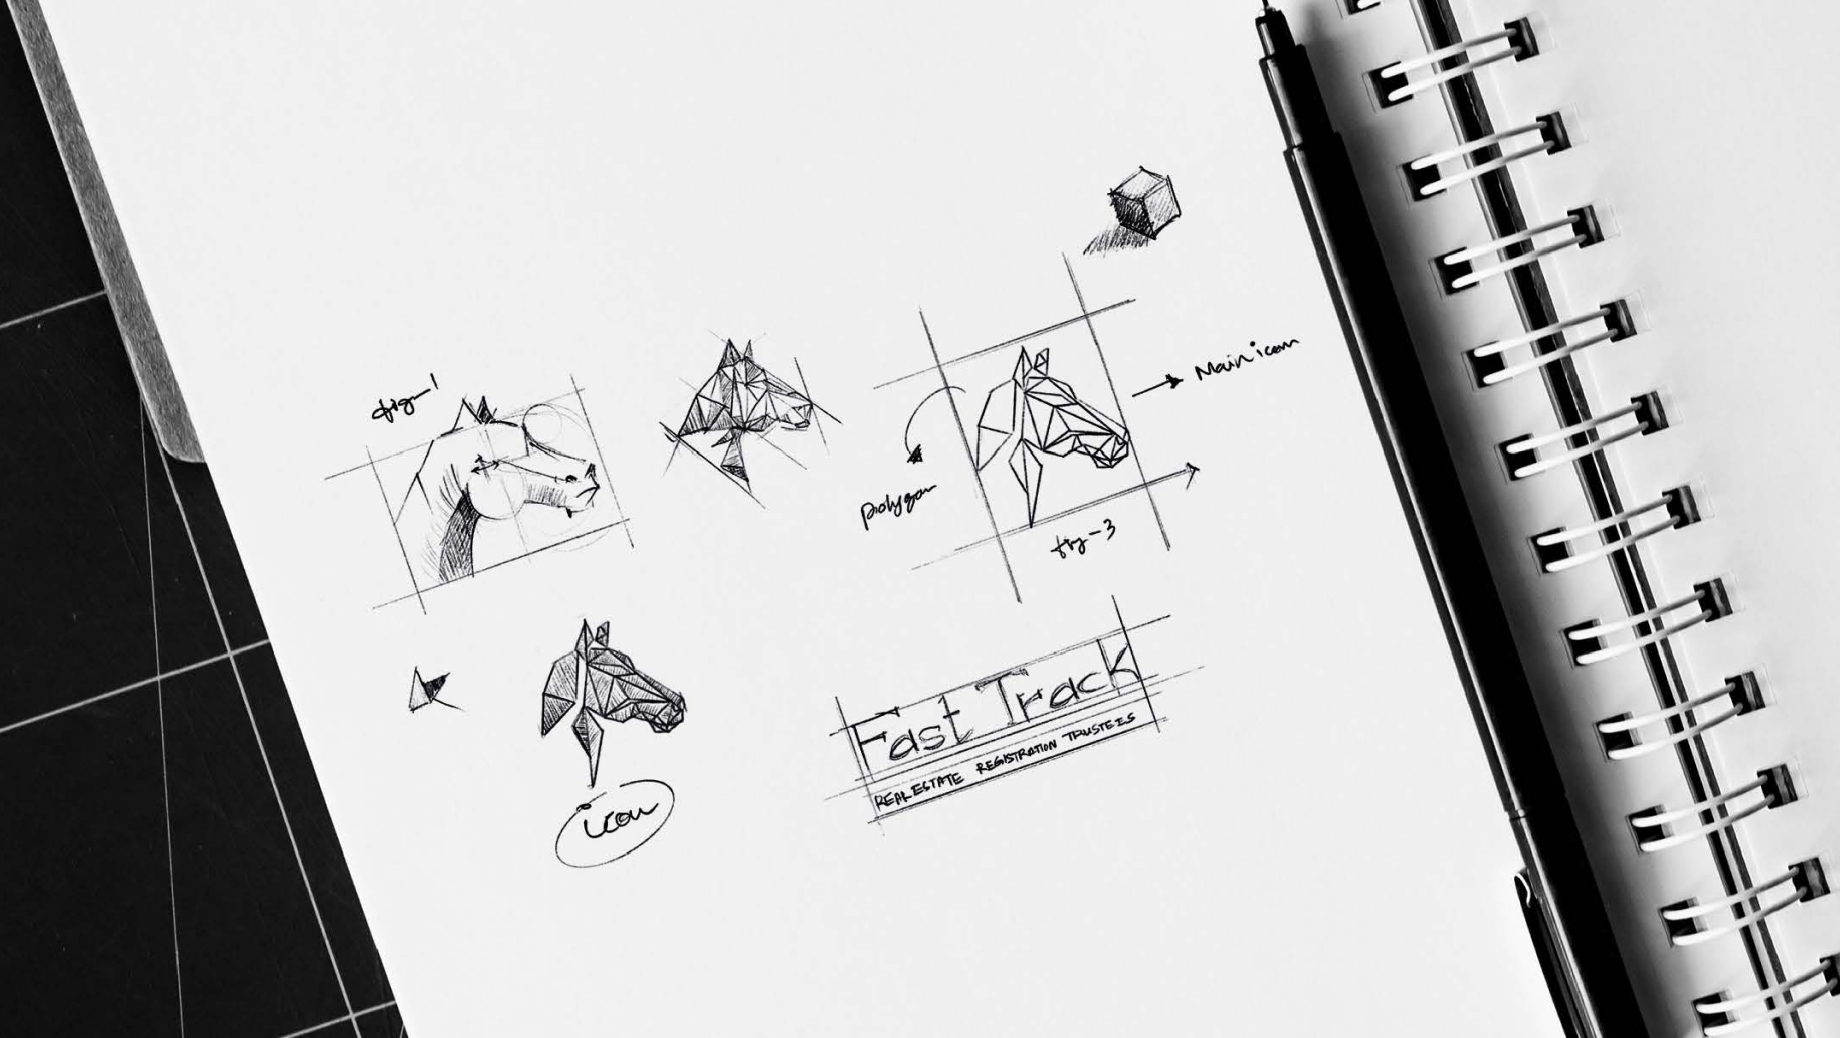 fig-1
Main icon
polygon
fig-3
Fast Track
REAL ESTATE REGISTRATION TRUSTEES
icon